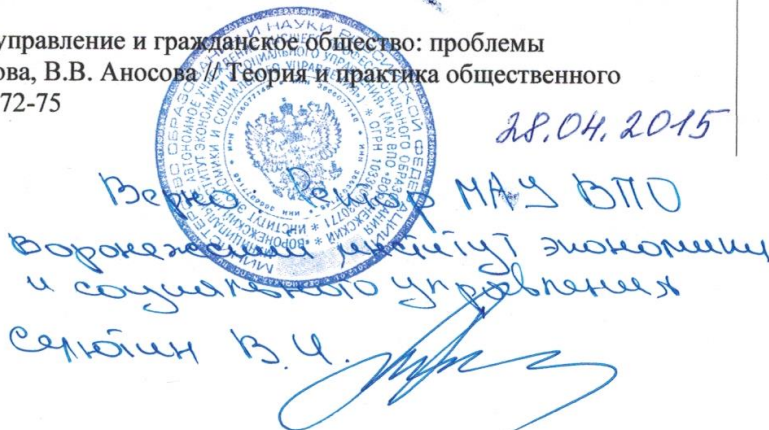 управление и гражданское общество: проблемы
ова, В.В. Аносова // Теория и практика общественного
72-75
28.04.2015
Верно Ректор МАУ ВПО
Воронежский институт экономики
и социального управления
Селютин В.И.